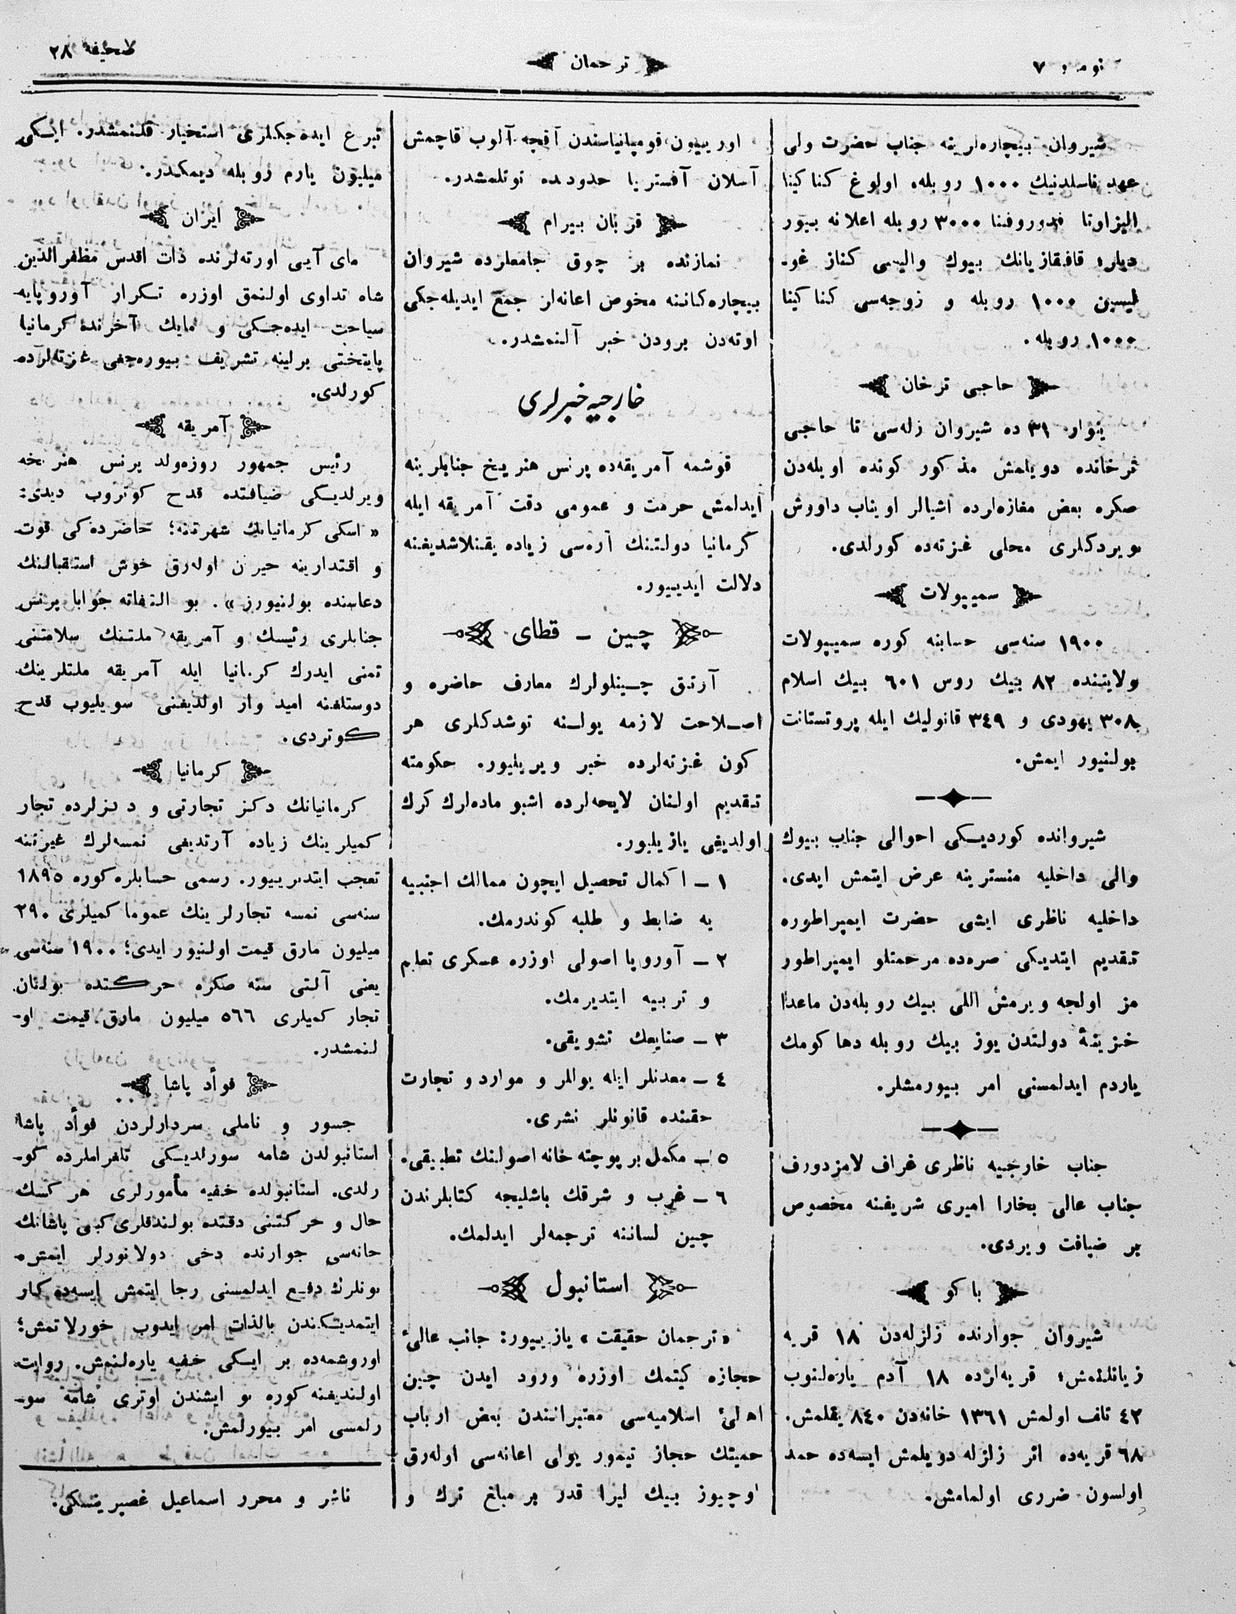 نومرو ٧
ترجمان
صحیفه ٢٨
شیروان بیچاره‌لرینه جناب حضرت ولی
عهد ناسلدنیك ١٠٠٠ روبله، اولوغ كناكینا
الیزاوتا فدوروفنا ٣٠٠٠ روبله اعلانه بیور
دیلر؛ قافقازیانك بیوك والیسی كناز غو-
لیسین ١٠٠٠ روبله و زوجه‌سی كناكینا
١٠٠٠ روبله.
حاجی ترخان
ینوار ٣١ ده شیروان زله‌سی تا حاجی
ترخانده دویلمش مذكور كونده اویله‌دن
صكره بعض مغازه‌لرده اشیالر اویناب داووش
ویردكلری محلی غزته‌ده كورلدی.
سمیپولات
١٩٠٠ سنه‌سی حسابنه كوره سمیپولات
ولایتنده ٨٢ بیك روس ٦٠١ بیك اسلام
٣٠٨ یهودی و ٣٤٩ قاتولیك ایله پروتستانت
بولنیور ایمش.
شیروانده كوردیكی احوالی جناب بیوك
والی داخلیه منسترینه عرض ایتمش ایدی.
داخلیه ناظری ایشی حضرت ایمپراطوره
تقدیم ایتدیكی صره‌ده مرحمتلو ایمپراطور
مز اولجه ویرمش اللی بیك روبله‌دن ماعدا
خزینۀ دولتدن یوز بیك روبله دها كومك
یاردم ایدلمسنی امر بیورمشلر.
جناب خارجیه ناظری غراف لامزدورف
جناب عالی بخارا امیری شریفنه مخصوص
بر ضیافت ویردی.
باكو
شیروان جوارنده زلزله‌دن ١٨ قریه
زیانلنمش؛ قریه‌لرده ١٨ آدم یاره‌لنوب
٤٢ تلف اولمش ١٣٦١ خانه‌دن ٨٤٠ یقلمش.
٦٨ قریه‌ده اثر زلزله دویلمش ایسه‌ده حمد
اولسون ضرری اولمامش.
اوربیون قومپانیاسندن آقچه آلوب قاچمش
آسلان آفستریا حدودنده توتلمشدر.
قربان بیرام
نمازنده بر چوق جامعلرده شیروان
بیچاره‌كاننه مخوص اعانه‌لر جمع ایدیله‌جكی
اوته‌دن برودن خبر آلنمشدر.
خارجیه خبرلری
قوشمه آمریقه‌ده پرنس هنریخ جنابلرینه
ایدلمش حرمت و عمومی دقت آمریقه ایله
كرمانیا دولتنك آره‌سی زیاده یقنلاشدیغنه
دلالت ایدییور.
چین ــ قطای
آرتق چینلولرك معارف حاضره و
اصلاحت لازمه یولنه توشدكلری هر
كون غزته‌لرده خبر ویریلیور. حكومته
تقدیم اولنان لایحه‌لرده اشبو ماده‌لرك كرك
اولدیغی یازیلیور.
١ ــ اكمال تحصیل ایچون ممالك اجنبیه
یه ضابط و طلبه كوندرمك.
٢ ــ آوروپا اصولی اوزره عسكری تعلیم
و تربیه ایتدیرمك.
٣ ــ صنایعك تشویقی.
٤ ــ معدنلر ایله یوللر و موارد و تجارت
حقنده قانونلر نشری.
٥ ــ مكمل بر پوچته خانه اصولنك تطبیقی.
٦ ــ غرب و شرقك باشلیجه كتابلرندن
چین لساننه ترجمه‌لر ایدلمك.
استانبول
«ترجمان حقیقت» یازییور: جانب عالیٔ
حجازه كیتمك اوزره ورود ایدن چین
اهلیٔ اسلامیه‌سی معتبرانندن بعض ارباب
حمیتك حجاز تیمور یولی اعانه‌سی اوله‌رق
اوچیوز بیك لیرا قدر بر مبلغ ترك و
تبرع ایده‌جكلری استخبار قلنمشدر. ایكی
میلیون یارم روبله دیمكدر.
ایران
مای آیی اورته‌لرنده ذات اقدس مظفرالدین
شاه تداوی اولنمق اوزره تكرار آوروپایه
سیاحت ایده‌جكی و مایك آخرنده كرمانیا
پایتختی برلینه تشریف بیوره‌جغی غزته‌لرده
كورلدی.
آمریقه
رئیس جمهور روزه‌ولد پرنس هنریخه
ویرلدیكی ضیافتده قدح كوتروب دیدی:
« اسكی كرمانیانك شهرتنه؛ حاضرده‌كی قوت
و اقتدارینه حیرن اوله‌رق خوش استقبالنك
دعاسنده بولنیورز». بو التفاته جوابا پرنس
جنابلری رئیسك و آمریقه ملتنك سلامتنی
تمنی ایدرك كرمانیا ایله آمریقه ملتلرینك
دوستلغنه امید وار اولدیغنی سویلیوب قدح
كوتردی.
كرمانیا
كرمانیانك دكز تجارتی و دیزلرده تجار
كمیلرینك زیاده آرتدیغی نمسه‌لرك غیرتنه
تعجب ایتدیرییور. رسمی حسابلره كوره ١٨٩٥
سنه‌سی نمسه تجارلرینك عموما كمیلری ٢٩٠
میلیون مارق قیمت اولنیور ایدی؛ ١٩٠٠ سنه‌سی
یعنی آلتی سنه صكره حركتده بولنان
تجار كمیلری ٥٦٦ میلیون مارق قیمت او-
لنمشدر.
فوأد پاشا
جسور و ناملی سردارلردن فوأد پاشا
استانبولدن شامه سورلدیكی تلغراملرده كو-
رلدی. استانبولده خفیه مأمورلری هر كسك
حال و حركتنی دقتده بولندقلری كبی پاشانك
خانه‌سی جوارنده دخی دولانورلر ایمش.
بونلرك دفع ایدلمسنی رجا ایتمش ایسه‌ده كار
ایتمدیكندن بالذات امر ایدوب خورلاتمش؛
اوروشمه‌ده بر ایكی خفیه یاره‌لنمش. روایت
اولندیغنه كوره بو ایشندن اوتری شامه سو-
رلمسی امر بیورلمش.
ناشر و محرر اسماعیل غصپرینسكی.